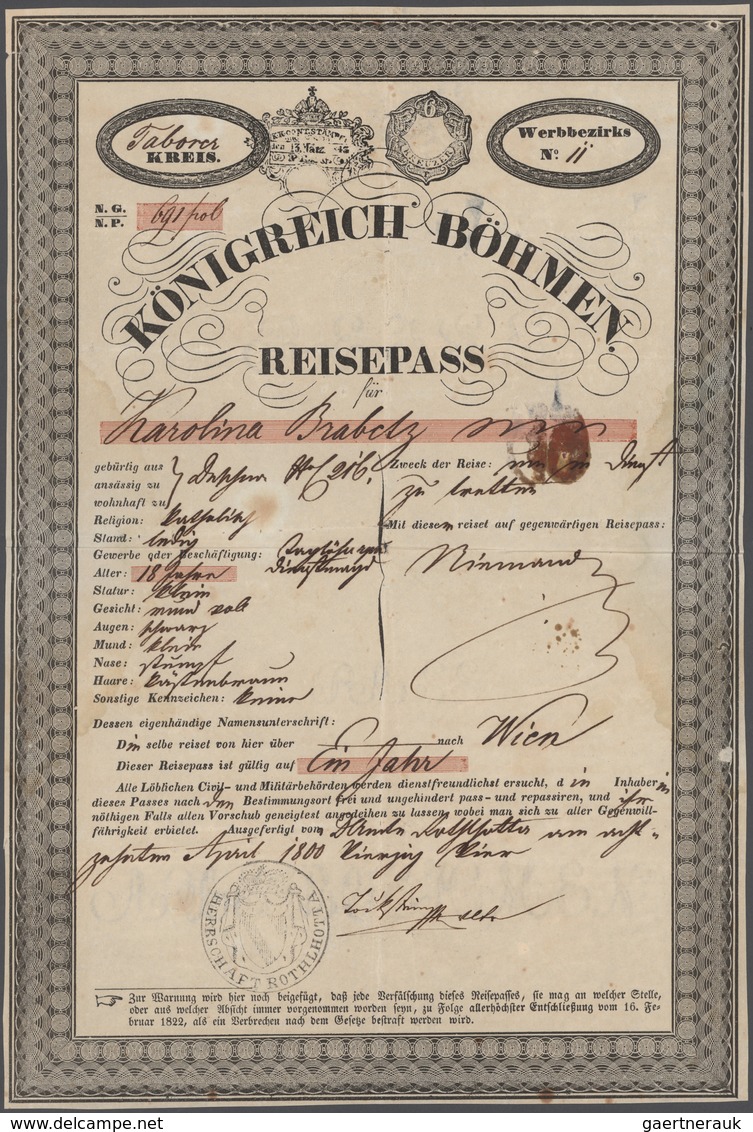 Taborer
KREIS.
den 13. März
6
KREUZER
Werbbezirks
No. 11
N. G.
N. P.
691/pol
KÖNIGREICH BÖHMEN.
REISEPASS
für
Karolina Brabetz
gebürtig aus
ansässig zu
wohnhaft zu
Zweck der Reise: um in Dienst
zu tretten
Religion: katholisch
Stand: ledig
Mit diesem reiset auf gegenwärtigen Reisepass:
Niemand
Gewerbe oder Beschäftigung:
Dienstmagd
Alter: 18 Jahre
Statur: klein
Gesicht: rund voll
Augen: schwarz
Mund: klein
Nase: stumpf
Haare: kästenbraun
Sonstige Kennzeichen: keine
Dessen eigenhändige Namensunterschrift:
Din selbe reiset von hier über nach Wien
Dieser Reisepass ist gültig auf Ein Jahr
Alle Löblichen Civil- und Militärbehörden werden dienstfreundlichst ersucht, d in Inhaber in
dieses Passes nach den Bestimmungsort frei und ungehindert pass- und repassiren, und ihr
nöthigen Falls allen Vorschub geneigtest angedeihen zu lassen, wobei man sich zu aller Gegenwill-
fährigkeit erbietet. Ausgefertigt vom am acht-
zehnten April 1800 vierzig vier
HERRSCHAFT ROTHLHOTTA
Zur Warnung wird hier noch beigefügt, daß jede Verfälschung dieses Reisepasses, sie mag an welcher Stelle,
oder aus welcher Absicht immer vorgenommen worden seyn, zu Folge allerhöchster Entschließung vom 16. Fe-
bruar 1822, als ein Verbrechen nach dem Gesetze bestraft werden wird.
gaertnerauk